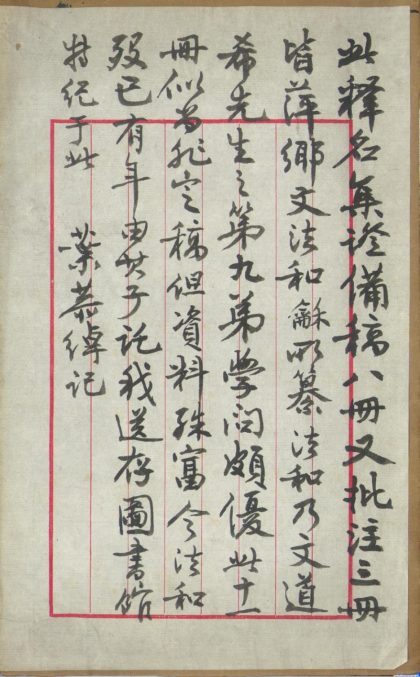 此释名集证備稿八冊又批注三冊
皆萍鄉文法和龢所纂法和乃文道
希先生之第九弟学问颇優此十一
冊似尚非定稿但資料殊富今法和
殁已有年由其子託我送存圖書館
特纪于此 葉恭綽记